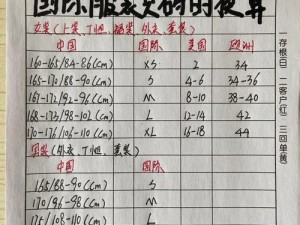 国际服装尺码的换算
女装(上装、T恤、裙装、外衣、童装)
中国 国际 美国 欧洲
160-165/84-86(cm) XS 2 34
165-170/88-90(cm) S 4-6 34-36
167-172/92-96(cm) M 8-10 38-40
168-173/98-102(cm) L 12-14 42
170-176/106-110(cm) XL 16-18 44
男装(外衣、T恤、童装)
中国 国际
165/88-90(cm) S
170/96-98(cm) M
175/108-110(cm) L
一存根(白) 二客户(红) 三回单(黄)